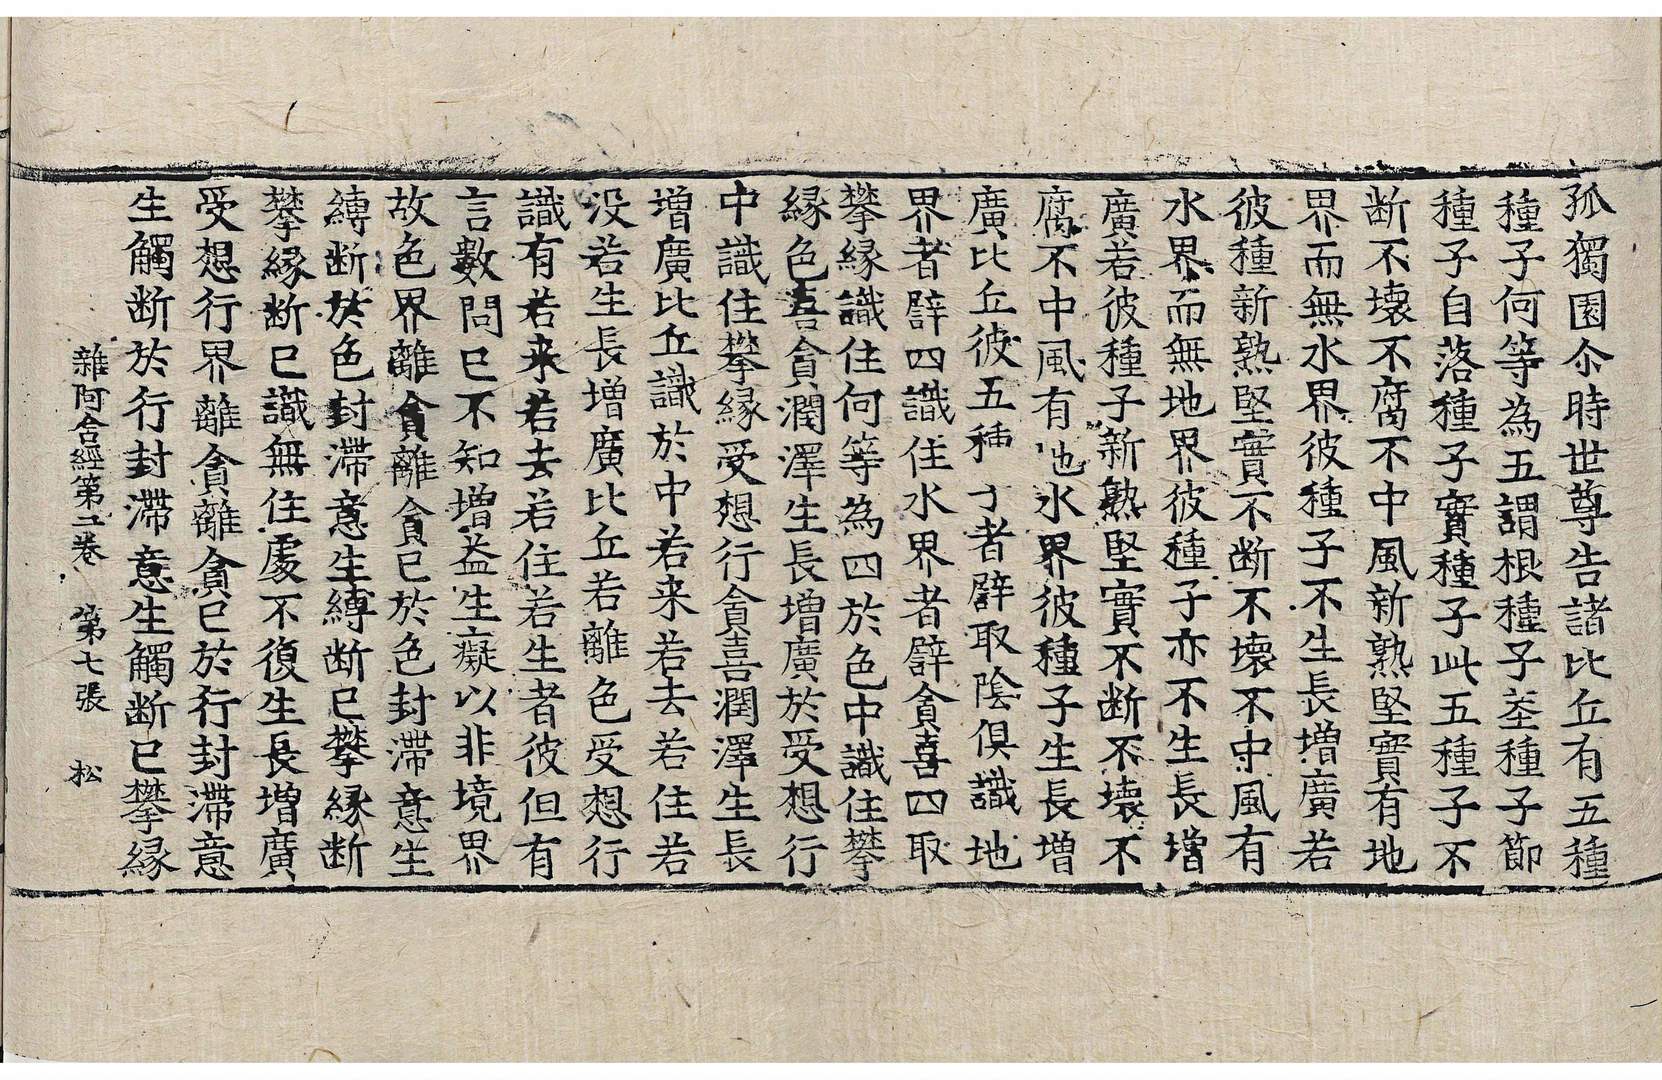 孤獨園尒時世尊告諸比丘有五種
種子何等為五謂根種子莖種子節
種子自落種子實種子此五種子不
断不壞不腐不中風新熟堅實有地
界而無水界彼種子不生長增廣若
彼種新熟堅實不断不壞不中風有
水界而無地界彼種子亦不生長增
廣若彼種子新熟堅實不断不壞不
腐不中風有地水界彼種子生長增
廣比丘彼五種子者譬取陰俱識地
界者譬四識住水界者譬貪喜四取
攀緣識住何等為四於色中識住攀
緣色喜貪潤澤生長增廣於受想行
中識住攀緣受想行貪喜潤澤生長
增廣比丘識於中若来若去若住若
没若生長增廣比丘若離色受想行
識有若来若去若住若生者彼但有
言數問已不知增益生癡以非境界
故色界離貪離貪已於色封滯意生
縛断於色封滯意生縛断已攀緣断
攀緣断已識無住處不復生長增廣
受想行界離貪離貪已於行封滯意
生觸断於行封滯意生觸断已攀緣
雜阿含經第二卷 第七張 松